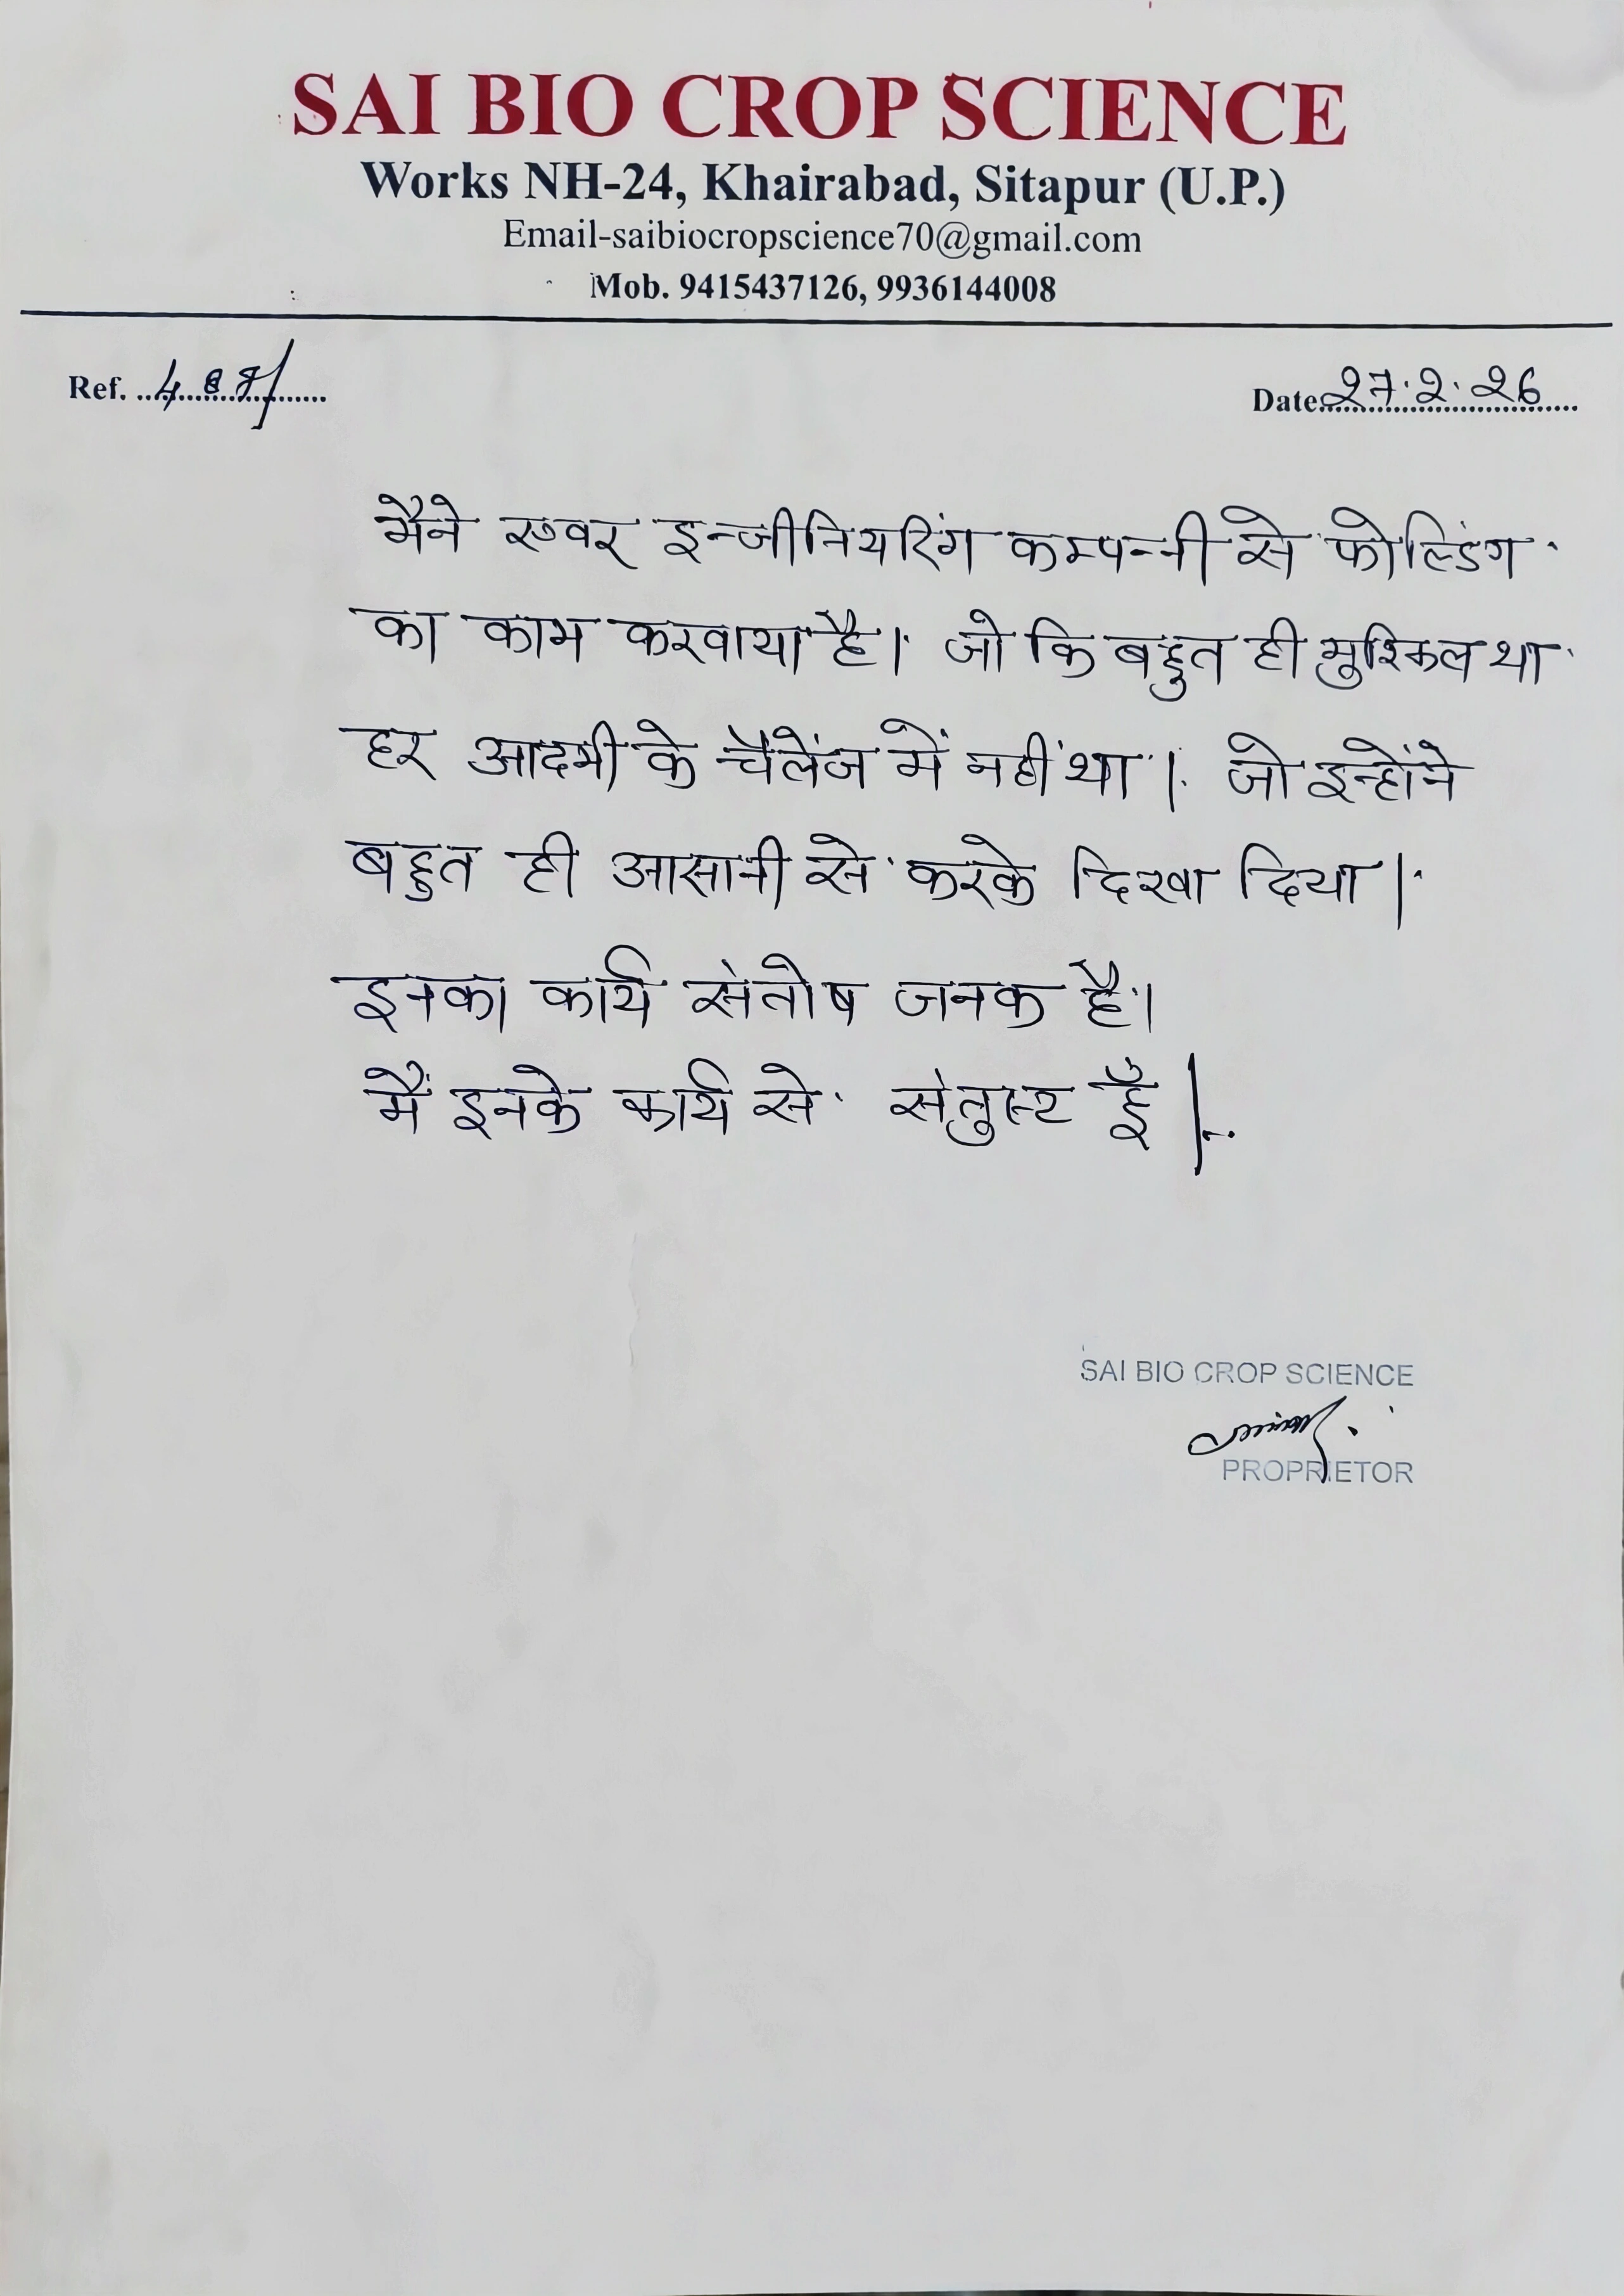 SAI BIO CROP SCIENCE
Works NH-24, Khairabad, Sitapur (U.P.)
Email-saibiocropscience70@gmail.com
Mob. 9415437126, 9936144008
Ref. 487/
Date 27.2.26
मैने इन्जीनियरिंग कम्पन्नी से फोल्डिंग
का काम करवाया है। जो कि बहुत ही मुश्किल था
हर आदमी के चैलेंज में नहीं था। जो इन्होंने
बहुत ही आसानी से करके दिखा दिया।
इनका कार्य संतोष जनक है।
मैं इनके कार्य से संतुस्ट हूँ।
SAI BIO CROP SCIENCE
PROPRIETOR